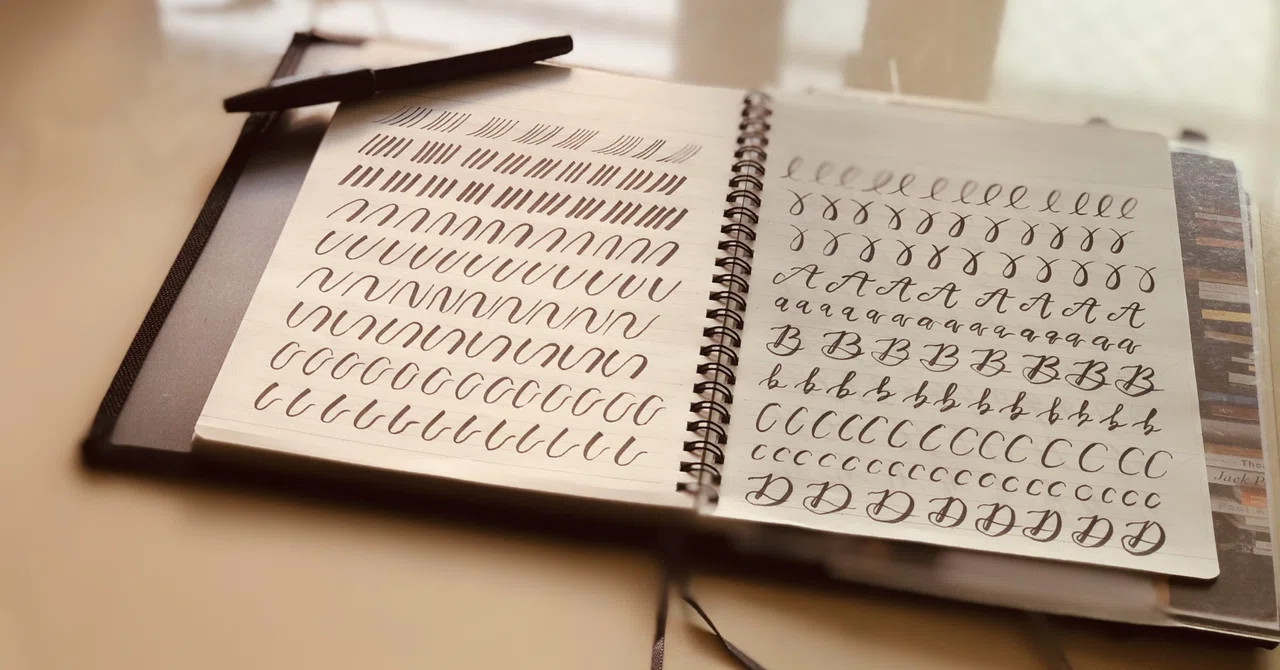 A A A A A A A A
a a a a a a a a a a a a a a a
B B B B B B B B
b b b b b b b b b b b b
C C C C C C C C C C C C C C
c c c c c c c c c c c c c c c c
D D D D D D D D
Jack P